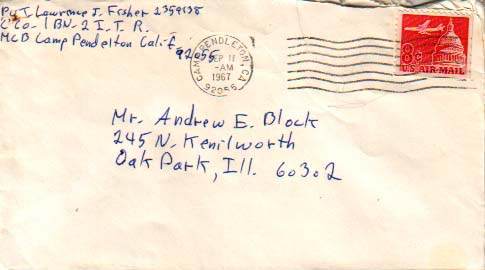 Pvt Lawrence J. Fisher 2359538
"C" Co - 1 BN - 2 I. T. R.
MCB Camp Pendelton Calif
92055
CAMP PENDLETON, CA
SEP 11
-AM
1967
92055
8¢
US AIR MAIL
Mr. Andrew E. Block
245 N. Kenilworth
Oak Park, Ill. 60302